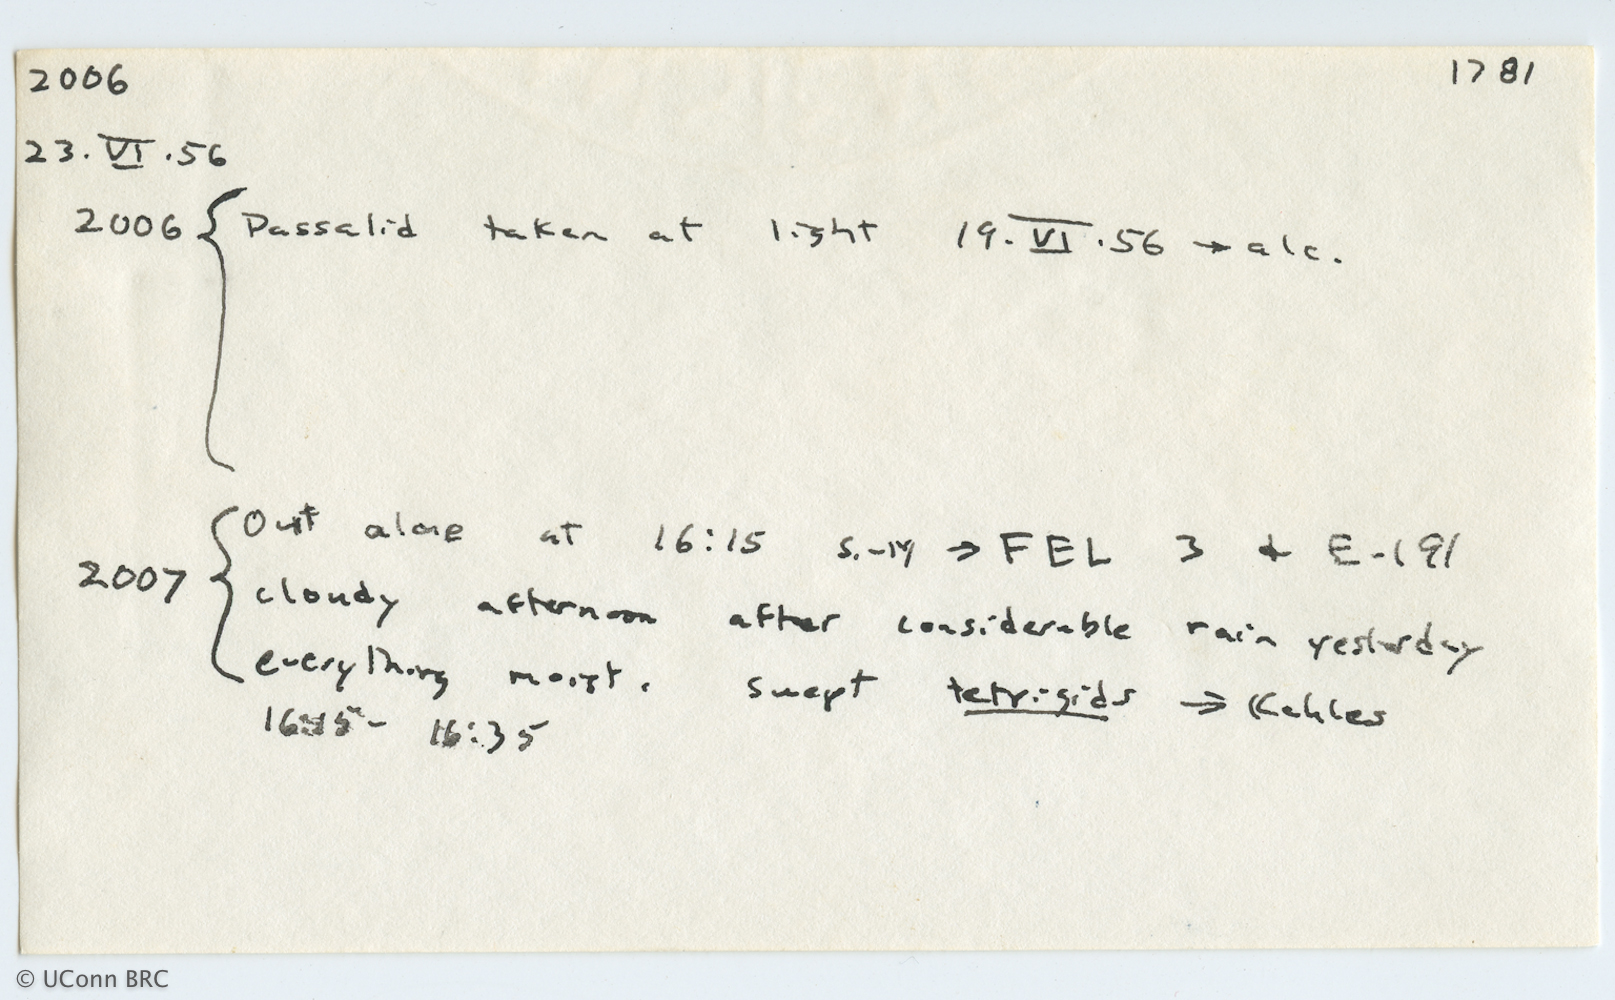 2006 1781
23.VI.56
2006 { Passalid taken at light 19.VI.56 → alc.
2007 { Out alone at 16:15 → FEL 3 & E-191
cloudy afternoon after considerable rain yesterday
everything moist. swept tetrigids →
16:15 - 16:35
© UConn BRC